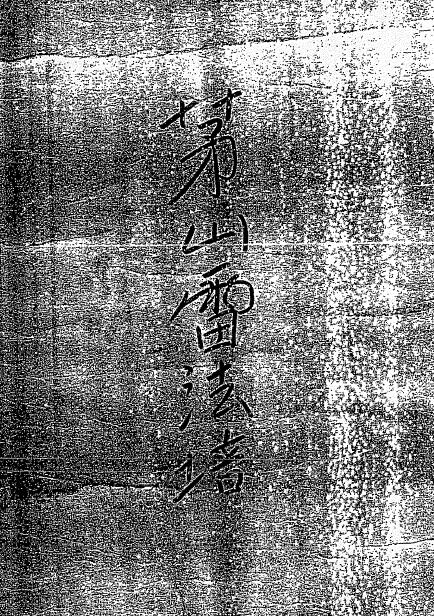 茅山雷法墙